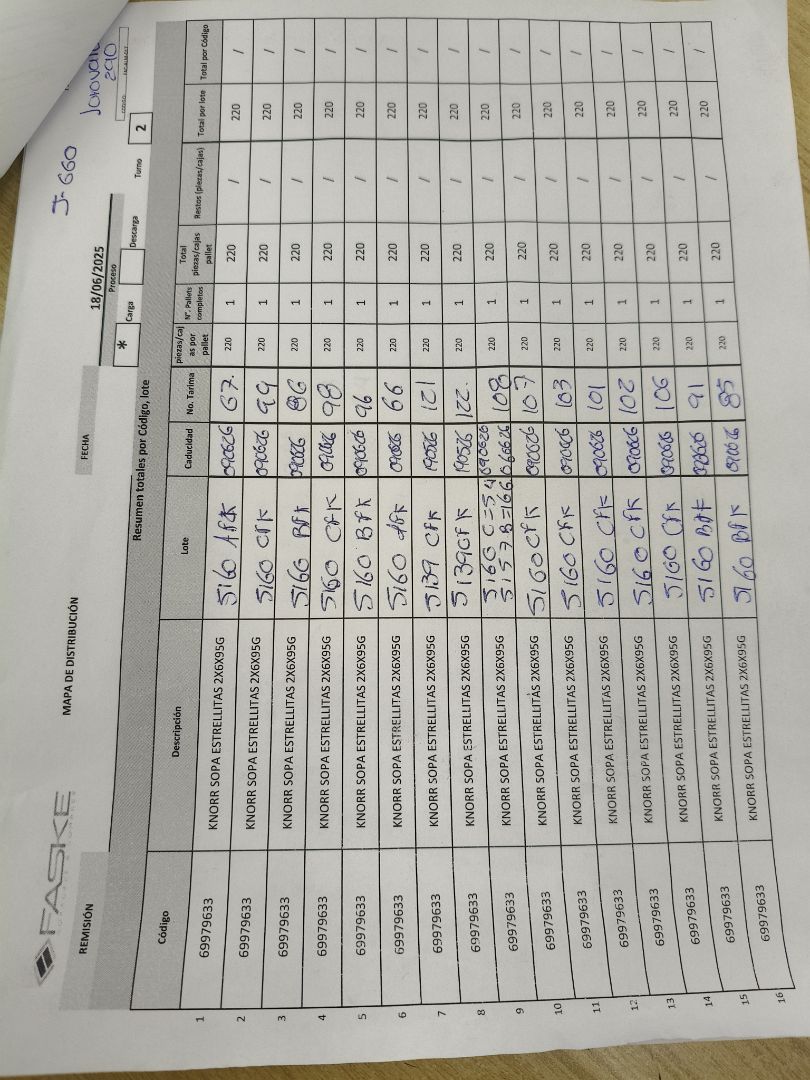 J-660
Jorovale
290
FASKE
REMISIÓN
MAPA DE DISTRIBUCIÓN
FECHA 18/06/2025
Proceso
* Carga Descarga Turno 2
Resumen totales por Código, lote
Código Descripción Lote Caducidad No. Tarima piezas/cajas por pallet N°. Pallets completos Total piezas/cajas pallet Restos (piezas/cajas) Total por lote Total por Código
1 69979633 KNORR SOPA ESTRELLITAS 2X6X95G 5160 AFK 090626 67. 220 1 220 / 220 /
2 69979633 KNORR SOPA ESTRELLITAS 2X6X95G 5160 CFK 090626 99 220 1 220 / 220 /
3 69979633 KNORR SOPA ESTRELLITAS 2X6X95G 5160 BFK 090626 86 220 1 220 / 220 /
4 69979633 KNORR SOPA ESTRELLITAS 2X6X95G 5160 CFK 090626 98 220 1 220 / 220 /
5 69979633 KNORR SOPA ESTRELLITAS 2X6X95G 5160 BFK 090626 96 220 1 220 / 220 /
6 69979633 KNORR SOPA ESTRELLITAS 2X6X95G 5160 AFK 090626 66 220 1 220 / 220 /
7 69979633 KNORR SOPA ESTRELLITAS 2X6X95G 5139 CFK 190526 121 220 1 220 / 220 /
8 69979633 KNORR SOPA ESTRELLITAS 2X6X95G 5139 CFK 190526 122. 220 1 220 / 220 /
9 69979633 KNORR SOPA ESTRELLITAS 2X6X95G 5160 C=54 090626 108 220 1 220 / 220 /
5157 B=166 060626
10 69979633 KNORR SOPA ESTRELLITAS 2X6X95G 5160 CFK 090626 107 220 1 220 / 220 /
11 69979633 KNORR SOPA ESTRELLITAS 2X6X95G 5160 CFK 090626 103 220 1 220 / 220 /
12 69979633 KNORR SOPA ESTRELLITAS 2X6X95G 5160 CFK 090626 101 220 1 220 / 220 /
13 69979633 KNORR SOPA ESTRELLITAS 2X6X95G 5160 CFK 090626 102 220 1 220 / 220 /
14 69979633 KNORR SOPA ESTRELLITAS 2X6X95G 5160 CFK 090626 106 220 1 220 / 220 /
15 69979633 KNORR SOPA ESTRELLITAS 2X6X95G 5160 BFK 090626 91 220 1 220 / 220 /
16 69979633 KNORR SOPA ESTRELLITAS 2X6X95G 5160 BFK 090626 85 220 1 220 / 220 /